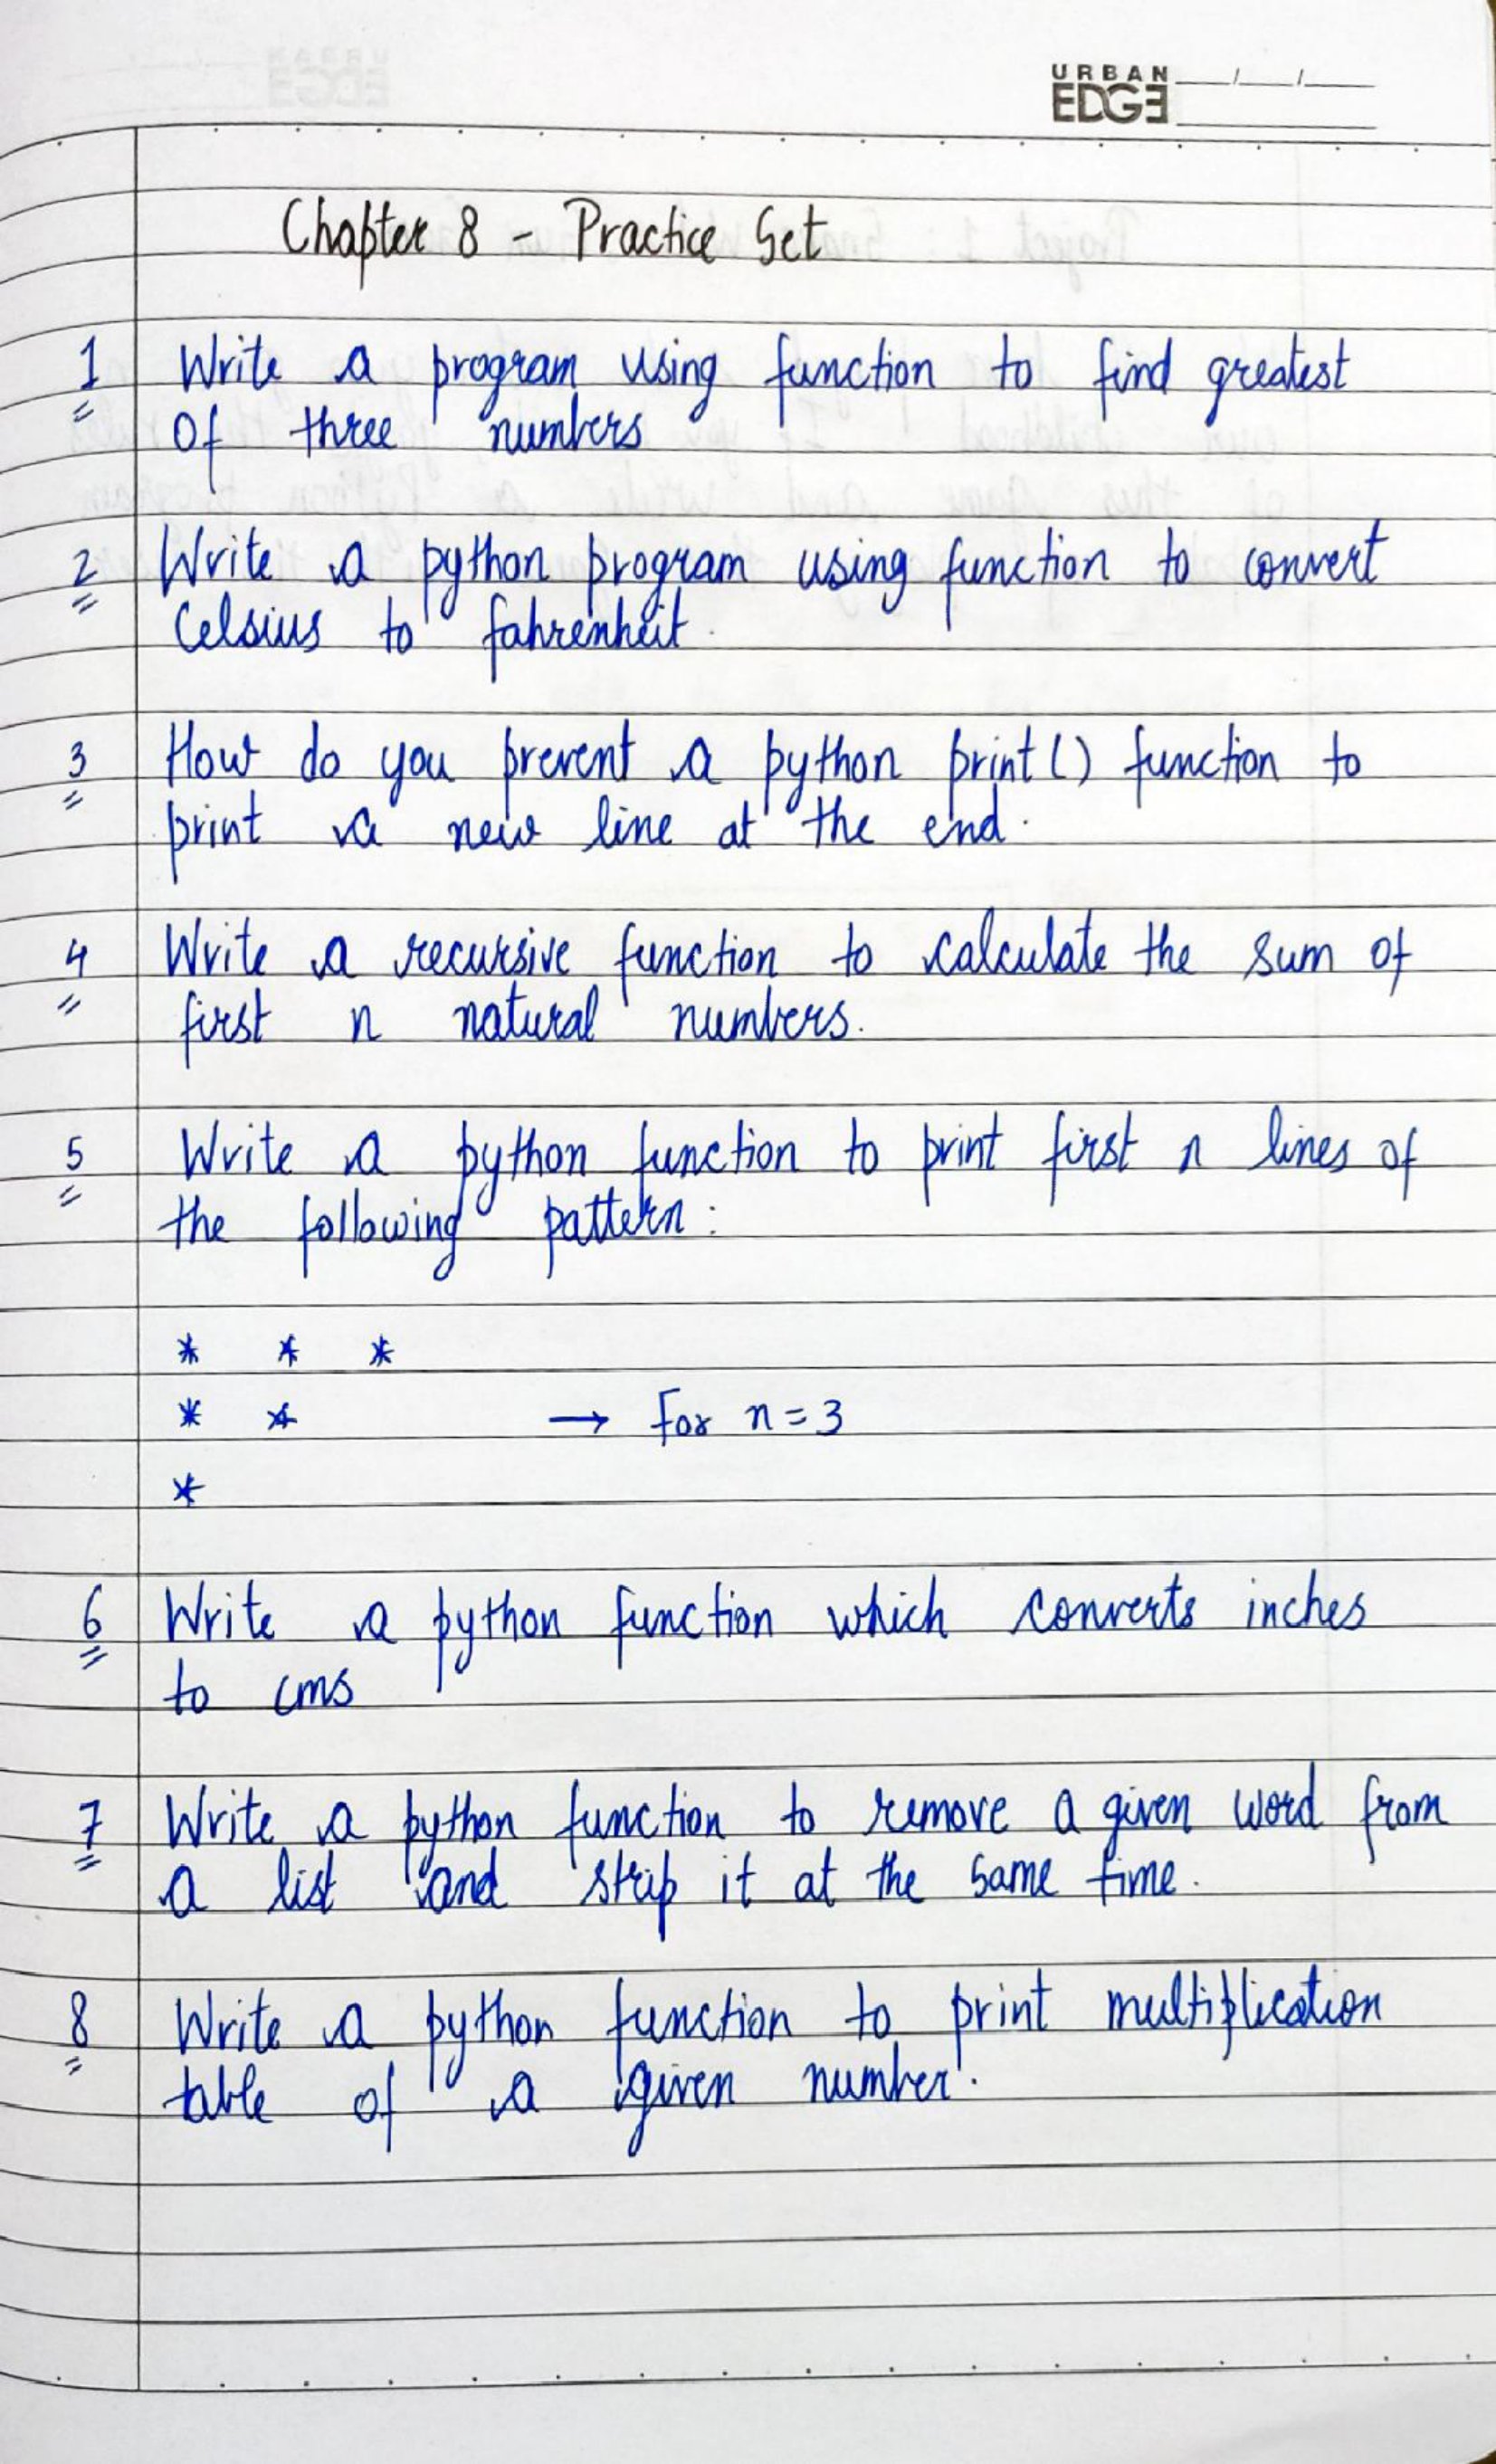 URBAN
EDGE
Chapter 8 - Practice Set
1 Write a program using function to find greatest
of three numbers
2 Write a python program using function to convert
Celsius to fahrenheit.
3 How do you prevent a python print() function to
print a new line at the end.
4 Write a recursive function to calculate the sum of
first n natural numbers.
5 Write a python function to print first n lines of
the following pattern:
* * *
* * → For n = 3
*
6 Write a python function which converts inches
to cms
7 Write a python function to remove a given word from
a list and strip it at the same time.
8 Write a python function to print multiplication
table of a given number.